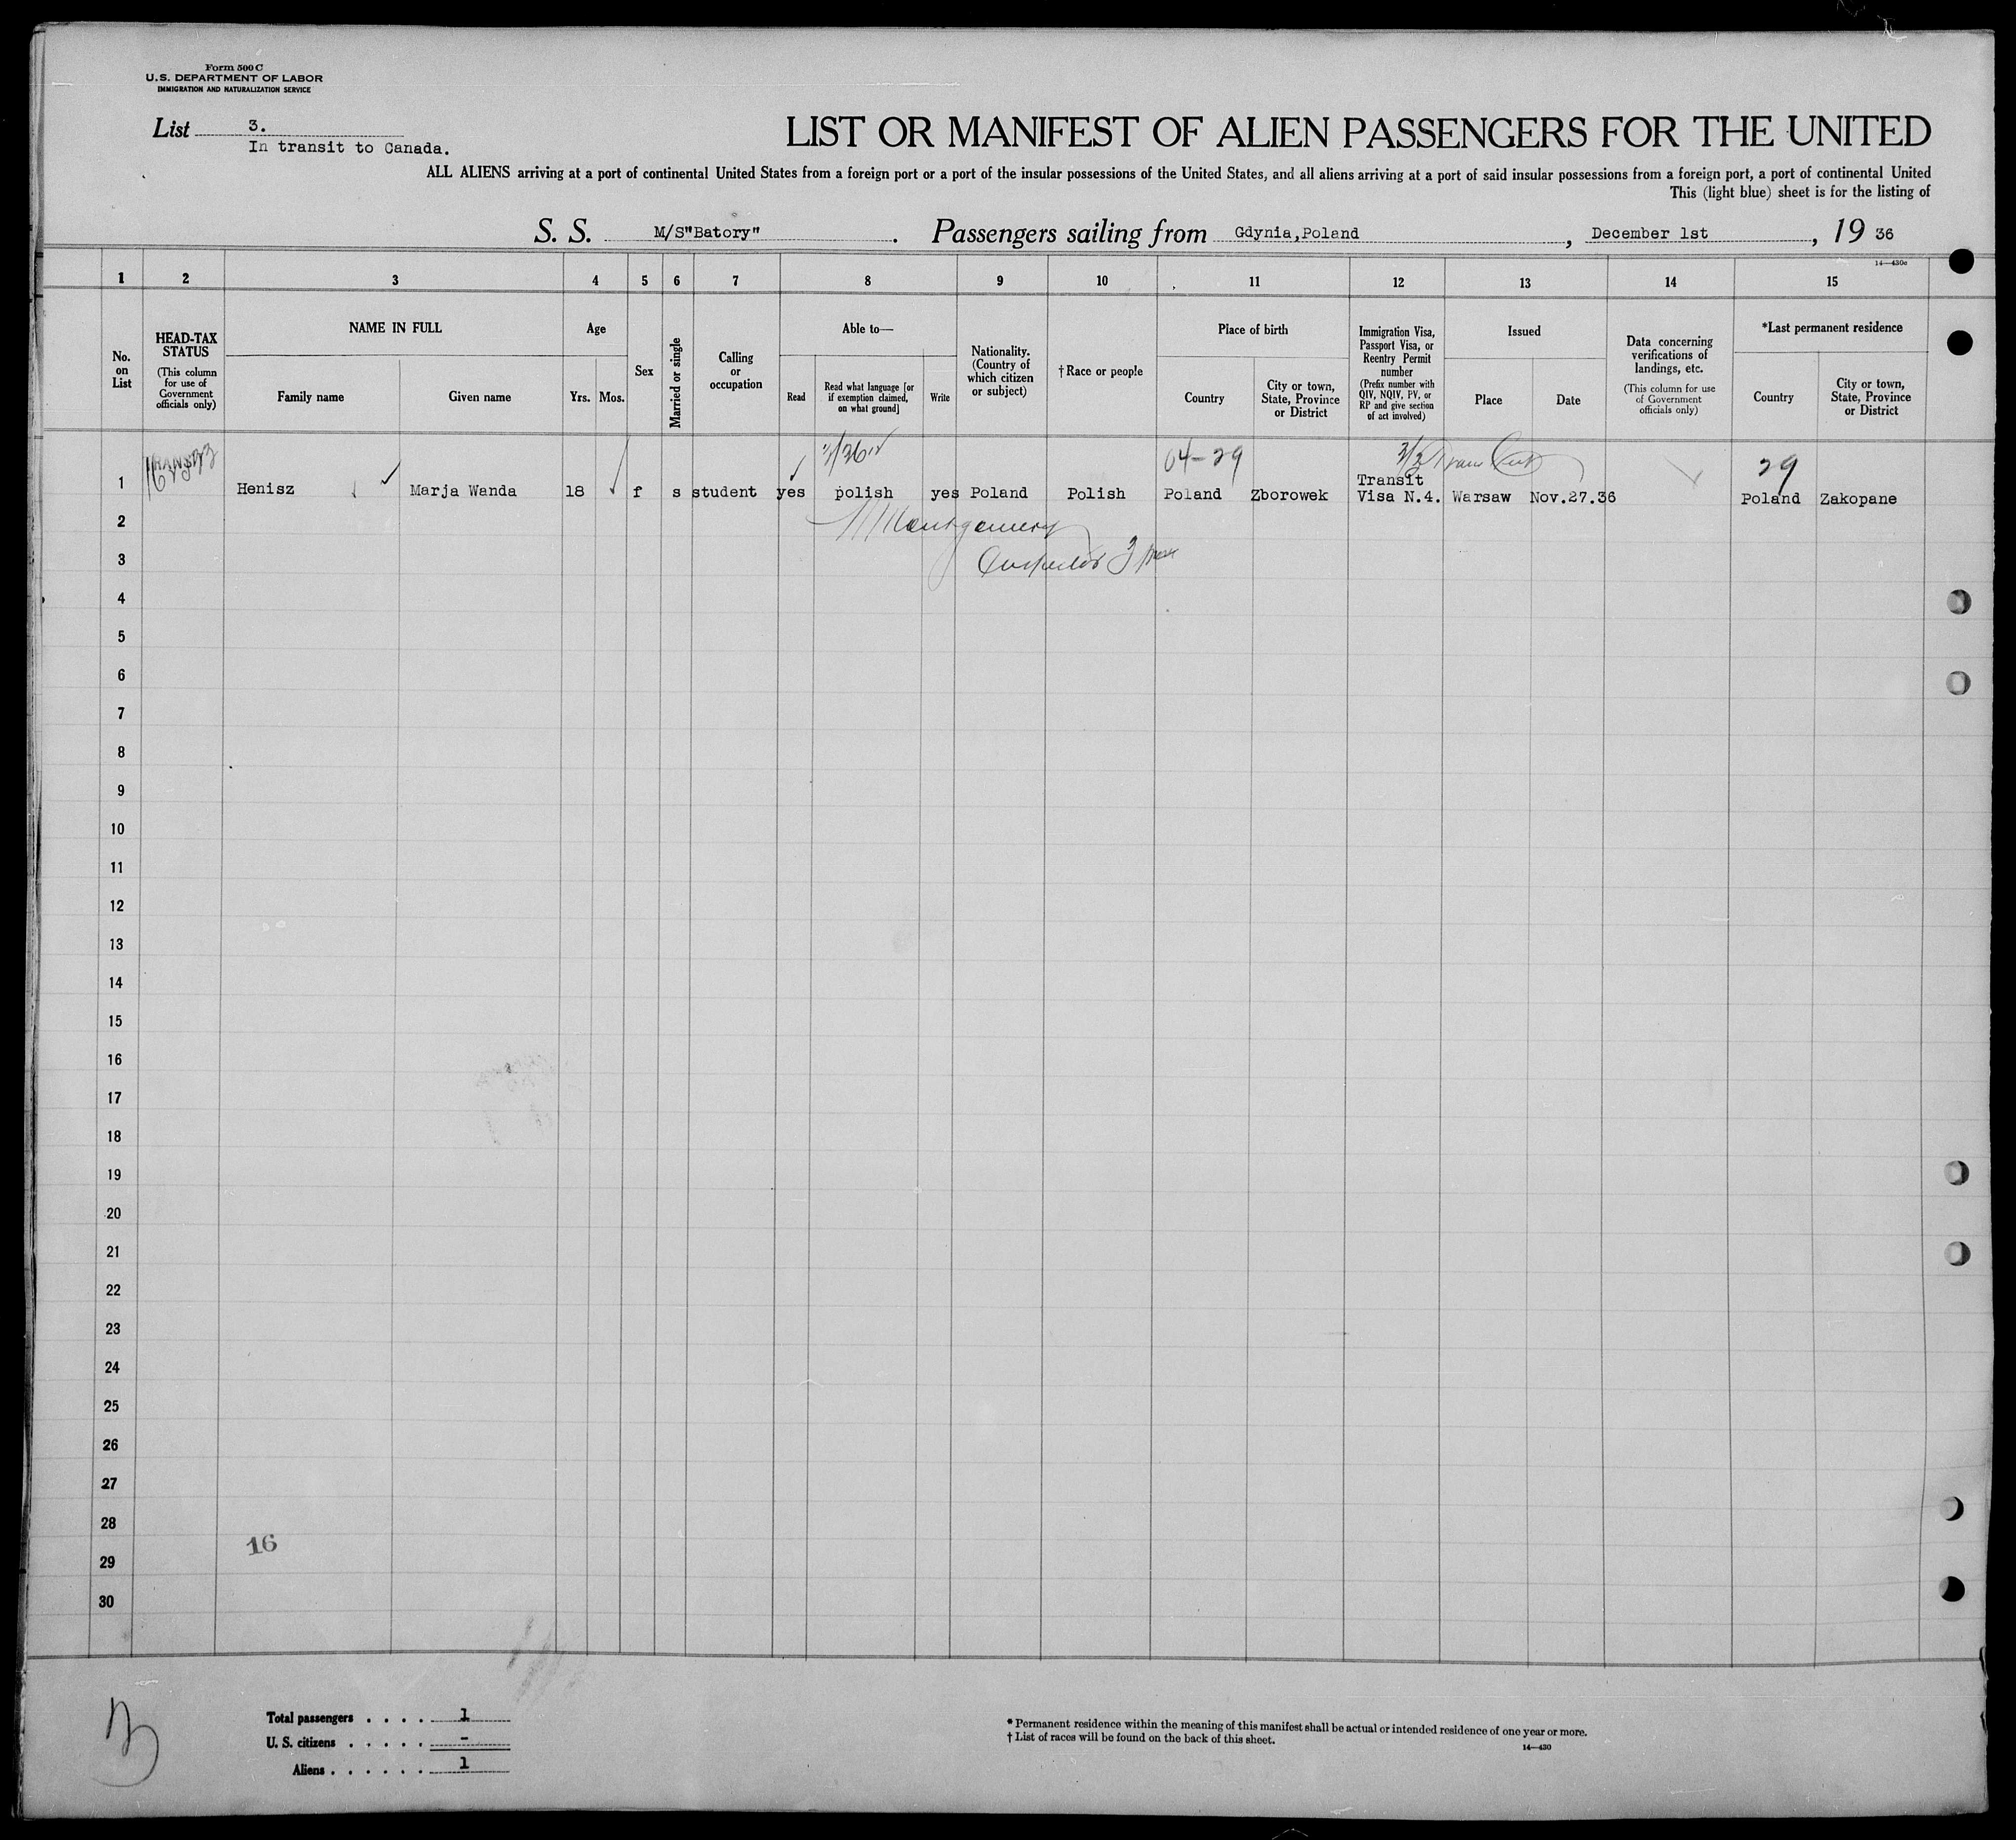 Form 500 C
U.S. DEPARTMENT OF LABOR
IMMIGRATION AND NATURALIZATION SERVICE
List 3.
In transit to Canada.
LIST OR MANIFEST OF ALIEN PASSENGERS FOR THE UNITED
ALL ALIENS arriving at a port of continental United States from a foreign port or a port of the insular possessions of the United States, and all aliens arriving at a port of said insular possessions from a foreign port, a port of continental United
This (light blue) sheet is for the listing of
S. S. M/S"Batory". Passengers sailing from Gdynia,Poland, December 1st, 19 36
14—430c
1 2 3 4 5 6 7 8 9 10 11 12 13 14 15
No. on List
HEAD-TAX STATUS
(This column for use of Government officials only)
NAME IN FULL
Family name
Given name
Age
Yrs.
Mos.
Sex
Married or single
Calling or occupation
Able to—
Read
Read what language [or if exemption claimed, on what ground]
Write
Nationality. (Country of which citizen or subject)
†Race or people
Place of birth
Country
City or town, State, Province or District
Immigration Visa, Passport Visa, or Reentry Permit number
(Prefix number with QIV, NQIV, PV, or RP and give section of act involved)
Issued
Place
Date
Data concerning verifications of landings, etc.
(This column for use of Government officials only)
*Last permanent residence
Country
City or town, State, Province or District
TRANSIT
04-29
29
1 Henisz Marja Wanda 18 f s student yes polish yes Poland Polish Poland Zborowek Transit Visa N.4. Warsaw Nov.27.36 Poland Zakopane
2 Montgomery
3 Inspector
4
5
6
7
8
9
10
11
12
13
14
15
16
17
18
19
20
21
22
23
24
25
26
27
28
16
29
30
3
Total passengers . . . . 1
U. S. citizens . . . . . -
Aliens . . . . . . 1
* Permanent residence within the meaning of this manifest shall be actual or intended residence of one year or more.
† List of races will be found on the back of this sheet.
14—430